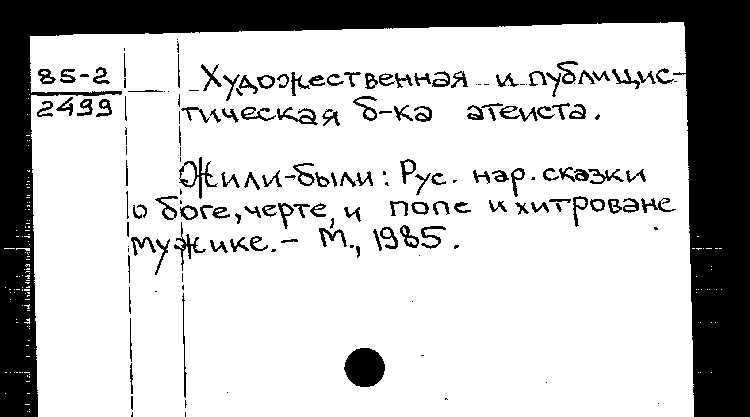 85-2
2499
Художественная и публицис-
тическая б-ка атеиста.
Жили-были: Рус. нар. сказки
о боге, черте, и попе и хитроване
мужике. - М., 1985.